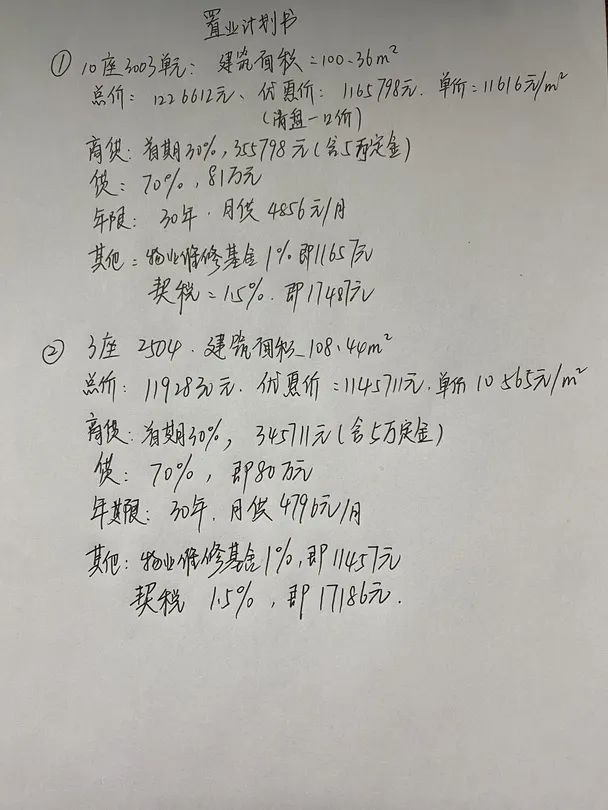 置业计划书
① 10座3003单元: 建筑面积=100.36m²
总价: 1226612元、优惠价: 1165798元. 单价=11616元/m²
(清盘一口价)
商贷: 首期30%, 355798元(含5万定金)
贷: 70%, 81万元
年限: 30年. 月供4856元/月
其他: 物业维修基金1%即11657元
契税=1.5%. 即17487元
② 3座 2504. 建筑面积 108.44m²
总价: 1192830元. 优惠价=1145711元. 单价10565元/m²
商贷: 首期30%, 345711元(含5万定金)
贷: 70%, 即80万元
年期限: 30年. 月供4796元/月
其他: 物业维修基金1%, 即11457元
契税 1.5%, 即17186元.